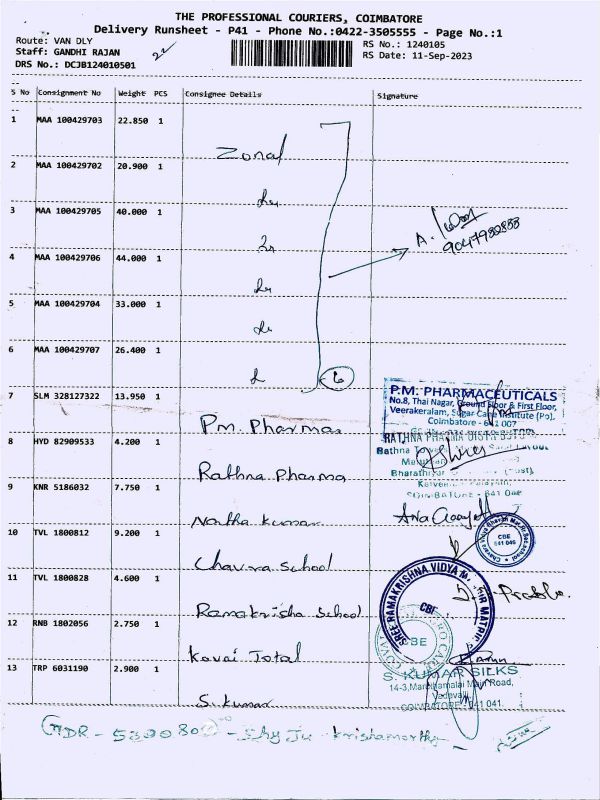 THE PROFESSIONAL COURIERS, COIMBATORE
Delivery Runsheet - P41 - Phone No.:0422-3505555 - Page No.:1
Route: VAN DLY
Staff: GANDHI RAJAN
DRS No.: DCJB124010501
RS No.: 1240105
RS Date: 11-Sep-2023
S No Consignment No Weight PCS Consignee Details Signature
1 MAA 100429703 22.850 1
Zonal
2 MAA 100429702 20.900 1
3 MAA 100429705 40.000 1
4 MAA 100429706 44.000 1
5 MAA 100429704 33.000 1
6 MAA 100429707 26.400 1
6
7 SLM 328127322 13.950 1
Pm. Pharmaa
P.M. PHARMACEUTICALS
No.8, Thai Nagar, Ground Floor & First Floor,
Veerakeralam, Sugar Cane Institute (Po),
Coimbatore - 641 007
8 HYD 82909533 4.200 1
Rathna Pharma
RATHNA PHARMA
9 KNR 5186032 7.750 1
Natha kumar
10 TVL 1800812 9.200 1
Chavra School
CBE
641 046
11 TVL 1800828 4.600 1
Ramakrisha School
SREE RAMAKRISHNA VIDYA
CBE
12 RNB 1802056 2.750 1
Kovai Total
CBE
13 TRP 6031190 2.900 1
S. kumar
S. KUMAR SILKS
Main Road,
Vadavalli
COIMBATORE - 641 041.
Shyju - Krishamorthy